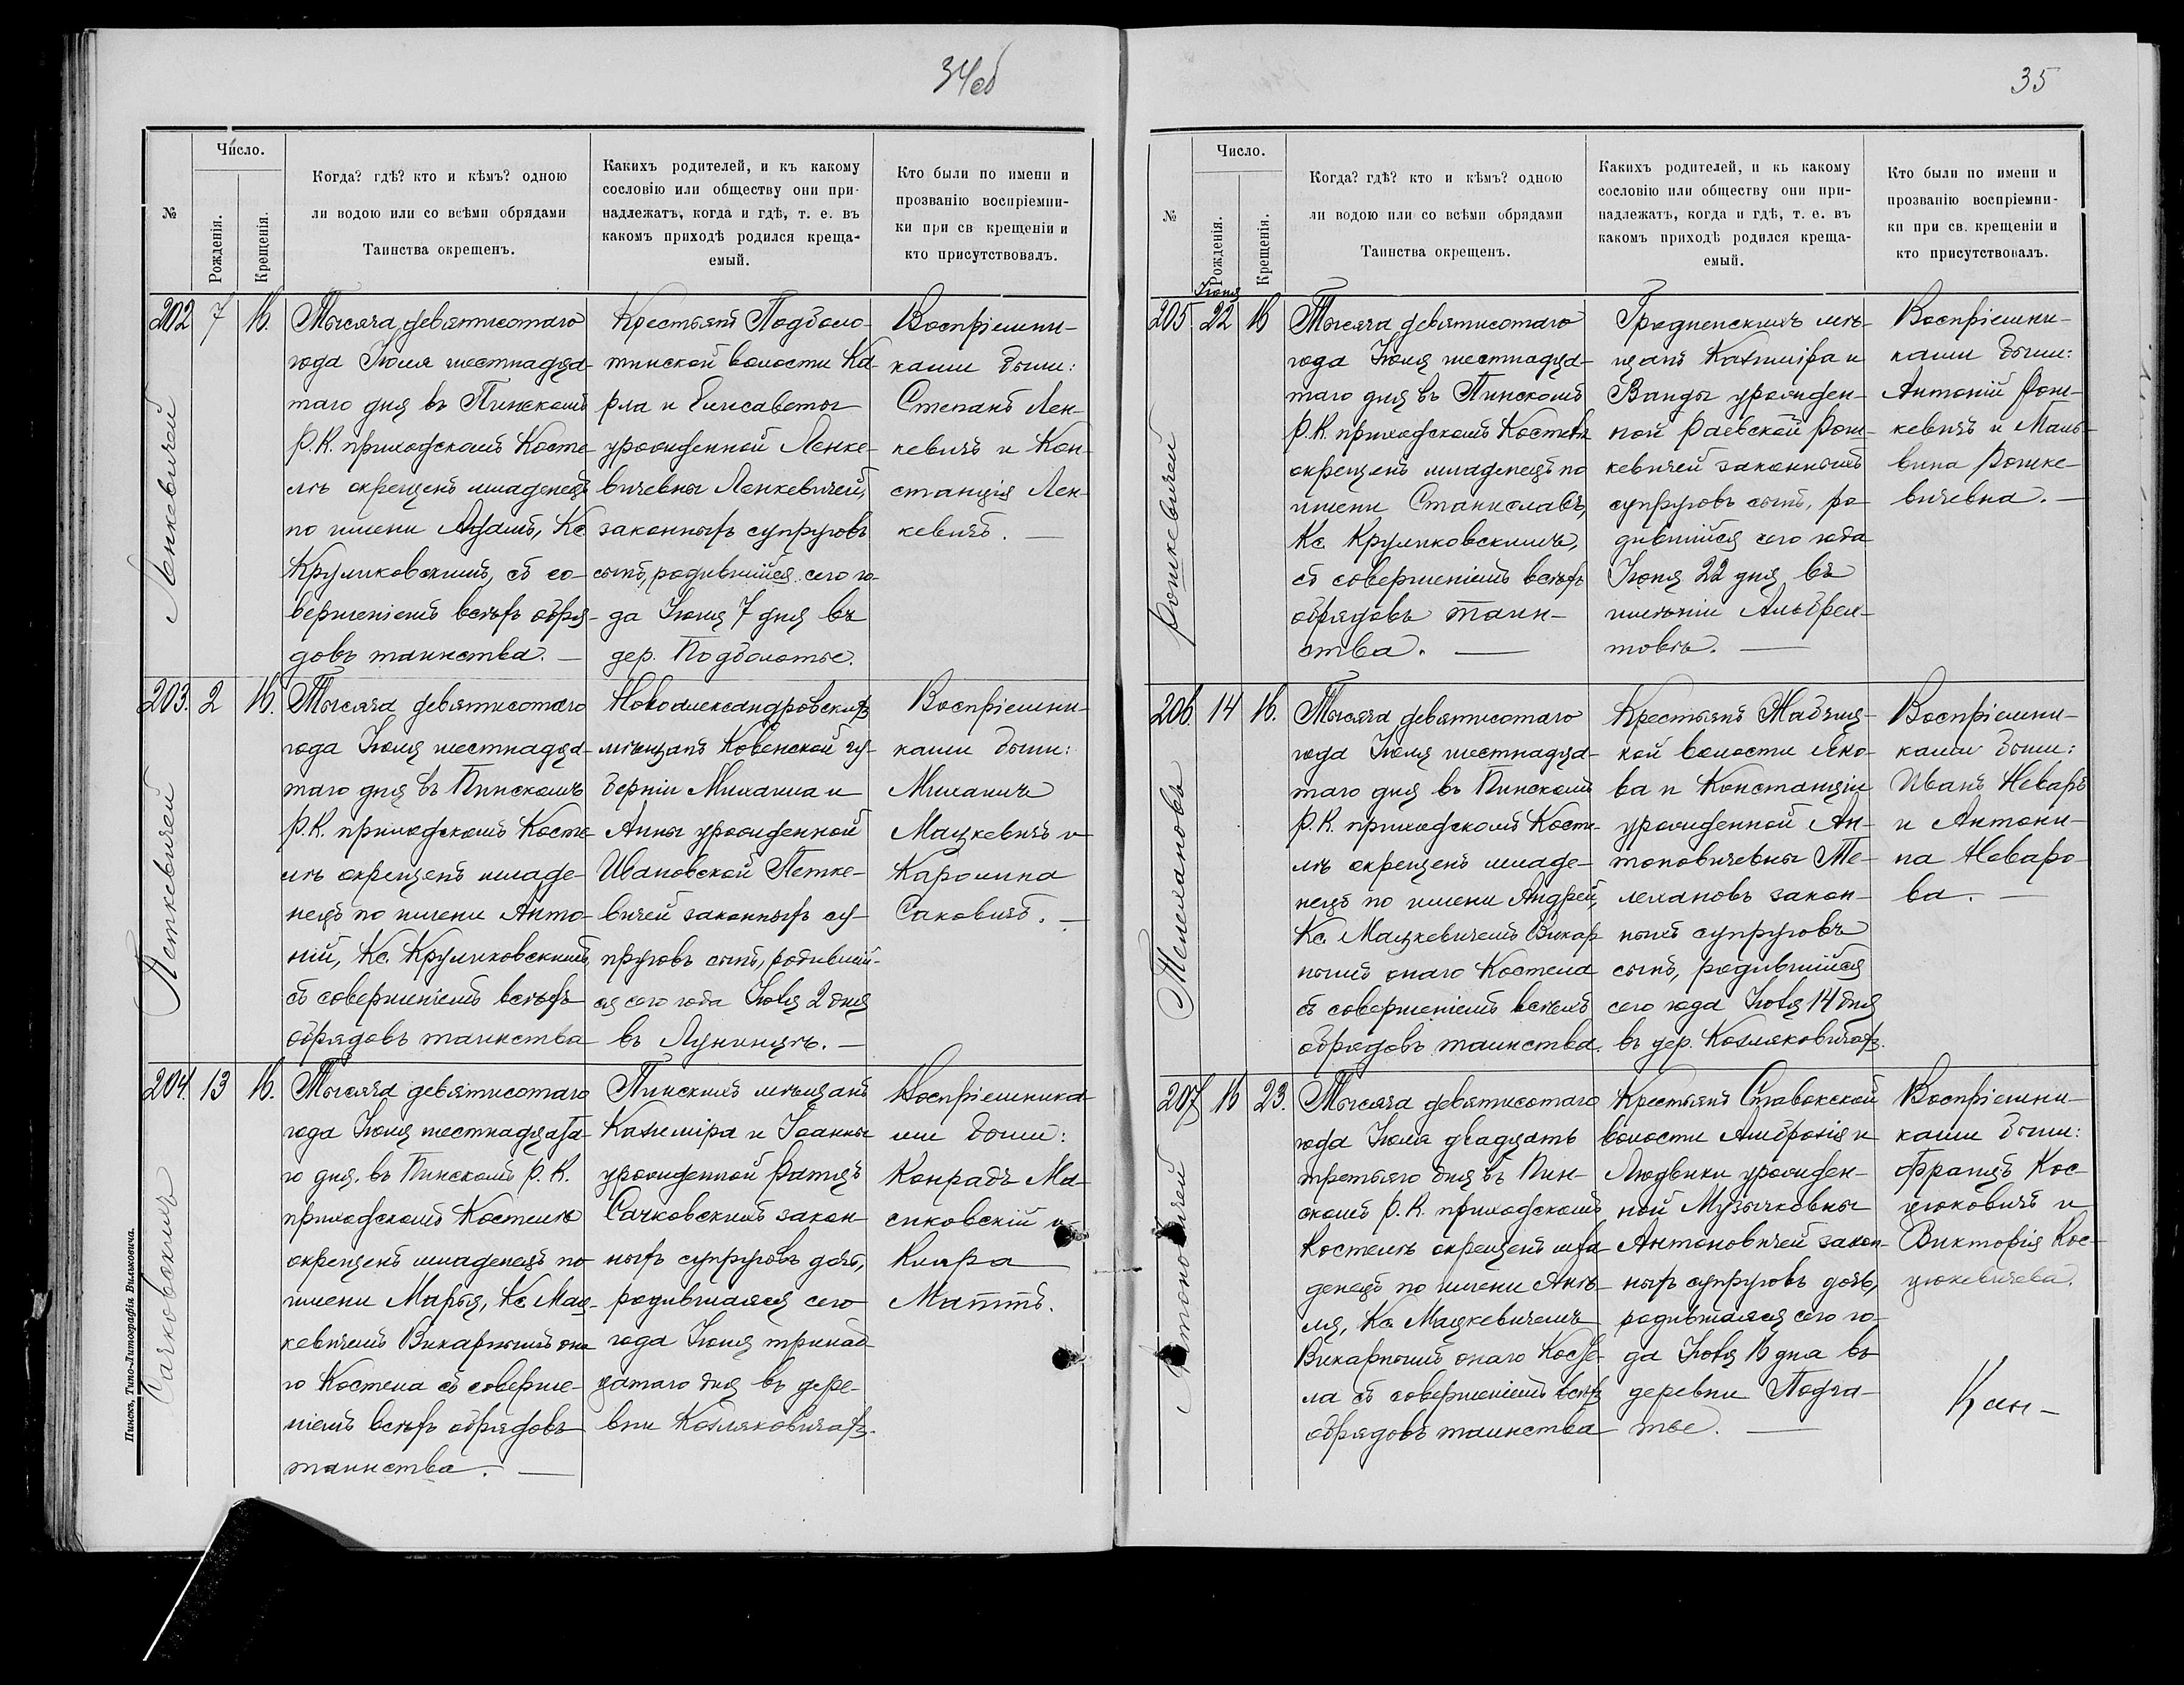 34об
№
Число.
Рожденія.
Крещенія.
Когда? гдѣ? кто и кѣмъ? одною
ли водою или со всѣми обрядами
Таинства окрещенъ.
Какихъ родителей, и къ какому
сословію или обществу они при-
надлежатъ, когда и гдѣ, т. е. въ
какомъ приходѣ родился креща-
емый.
Кто были по имени и
прозванію воспріемни-
ки при св крещеніи и
кто присутствовалъ.
202
7
16.
Ленкевичей
Тысяча девятисотаго
года Іюля шестнадца-
таго дня въ Пинскомъ
Р. К. приходскомъ Косте-
лѣ окрещенъ младенецъ
по имени Адамъ, Кс
Круликовскимъ, съ со-
вершеніемъ всѣхъ обря-
довъ таинства. —
Крестьянъ Подболо-
тинской волости Ка-
рла и Елисаветы
урожденной Ленке-
вичевны Ленкевичей,
законныхъ супруговъ
сынъ, родившійся сего го-
да Іюля 7 дня въ
дер. Подболотье.
Воспріемни-
ками были:
Степанъ Лен-
кевичъ и Кон-
станція Лен-
кевичъ. —
203.
2
16.
Петкевичей
Тысяча девятисотаго
года Іюля шестнадца-
таго дня въ Пинскомъ
Р. К. приходскомъ Косте-
лѣ окрещенъ младе-
нецъ по имени Анто-
ній, Кс. Круликовскимъ
съ совершеніемъ всѣхъ
обрядовъ таинства
Новоалександровскихъ
мѣщанъ Ковенской гу-
берніи Михаила и
Анны урожденной
Ивановской Петке-
вичей законныхъ су-
пруговъ сынъ, родивший-
ся сего года Іюля 2 дня
въ Лунинцѣ. —
Воспріемни-
ками были:
Михаилъ
Мацкевичъ и
Каролина
Саковичъ. —
204.
13
16.
Сачковскихъ
Тысяча девятисотаго
года Іюля шестнадцата-
го дня въ Пинскомъ Р. К.
приходскомъ Костелѣ
окрещенъ младенецъ по
имени Марья, Кс Мац-
кевичемъ Викарнымъ она-
го Костела съ соверше-
ніемъ всѣхъ обрядовъ
таинства. —
Пинскихъ мѣщанъ
Казиміра и Іоанны
урожденной Ратцъ
Сачковскихъ закон-
ныхъ супруговъ дочь,
родившаяся сего
года Іюля тринад-
цатаго дня въ дере-
вни Козляковичахъ.
Воспріемника-
ми были:
Конрадъ Ма-
сиковскій и
Клара
Маттъ.
Пинскъ, Типо-Литографія Вильковича.
35
№
Число.
Рожденія.
Крещенія.
Когда? гдѣ? кто и кѣмъ? одною
ли водою или со всѣми обрядами
Таинства окрещенъ.
Какихъ родителей, и кь какому
сословію или обществу они при-
надлежатъ, когда и гдѣ, т. е. въ
какомъ приходѣ родился креща-
емый.
Кто были по имени и
прозванію воспріемни-
ки при св. крещеніи и
кто присутствовалъ.
205
Іюня
22
16
Рошкевичей
Тысяча девятисотаго
года Іюля шестнадца-
таго дня въ Пинскомъ
Р. К. приходскомъ Костелѣ
окрещенъ младенецъ по
имени Станиславъ,
Кс. Круликовскимъ,
съ совершеніемъ всѣхъ
обрядовъ таин-
ства. —
Гродненскихъ мѣ-
щанъ Казиміра и
Ванды урожден-
ной Раевской Рош-
кевичей законныхъ
супруговъ сынъ, ро-
дившійся сего года
Іюня 22 дня въ
имѣніи Альбрех-
товѣ. —
Воспріемни-
ками были:
Антоній Рош-
кевичъ и Маль-
вина Рошке-
вичевна. —
206
14
16.
Телехановъ
Тысяча девятисотаго
года Іюля шестнадца-
таго дня въ Пинскомъ
Р. К. приходскомъ Косте-
лѣ окрещенъ младе-
нецъ по имени Андрей,
Кс. Мацкевичемъ Викар-
нымъ онаго Костела
съ совершеніемъ всѣхъ
обрядовъ таинства.
Крестьянъ Жабчиц-
кой волости Яко-
ва и Констанціи
урожденной Ан-
тоновичевны Те-
лехановъ закон-
ныхъ супруговъ
сынъ, родившійся
сего года Іюля 14 дня
въ дер. Козляковичахъ.
Воспріемни-
ками были:
Иванъ Неваръ
и Антони-
на Неваро-
ва. —
207
16
23.
Антоновичей
Тысяча девятисотаго
года Іюля двадцать
третьяго дня въ Пин-
скомъ Р. К. приходскомъ
Костелѣ окрещенъ мла-
денецъ по имени Анѣ-
ля, Кс. Мацкевичемъ
Викарнымъ онаго Косте-
ла съ совершеніемъ всѣхъ
обрядовъ таинства
Крестьянъ Ставокской
волости Амброзія и
Людвики урожден-
ной Музычковны
Антоновичей закон-
ныхъ супруговъ дочь,
родившаяся сего го-
да Іюля 16 дна въ
деревни Подга-
тье. —
Воспріемни-
ками были:
Францъ Кос-
цюковичъ и
Викторія Кос-
цюкевичева.